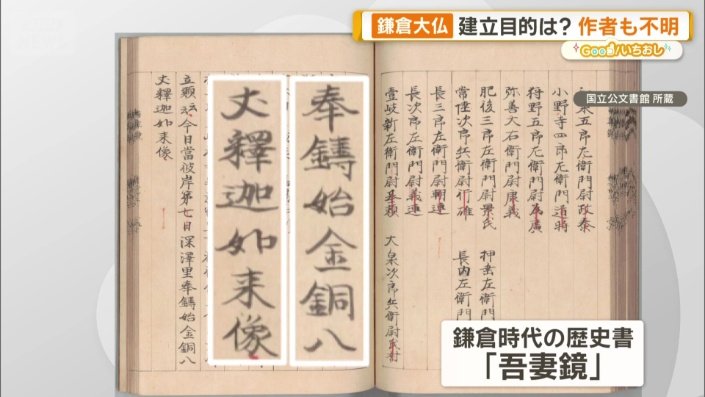 鎌倉大仏 建立目的は?作者も不明
Good!いちおし
国立公文書館 所蔵
小野寺四郎左衛門尉通時
狩野五郎左衛門尉為廣
弥善太左衛門尉康義
肥後三郎左衛門尉為氏
常陸次郎兵衛尉行雄
長三郎左衛門尉朝連
長次郎左衛門尉義連
壹岐新左衛門尉基頼
大泉次郎兵衛尉氏村
奉鋳始金銅八
丈釋迦如来像
今日當彼岸第七日深澤里奉鋳始金銅八
丈釋迦如来像
鎌倉時代の歴史書
「吾妻鏡」